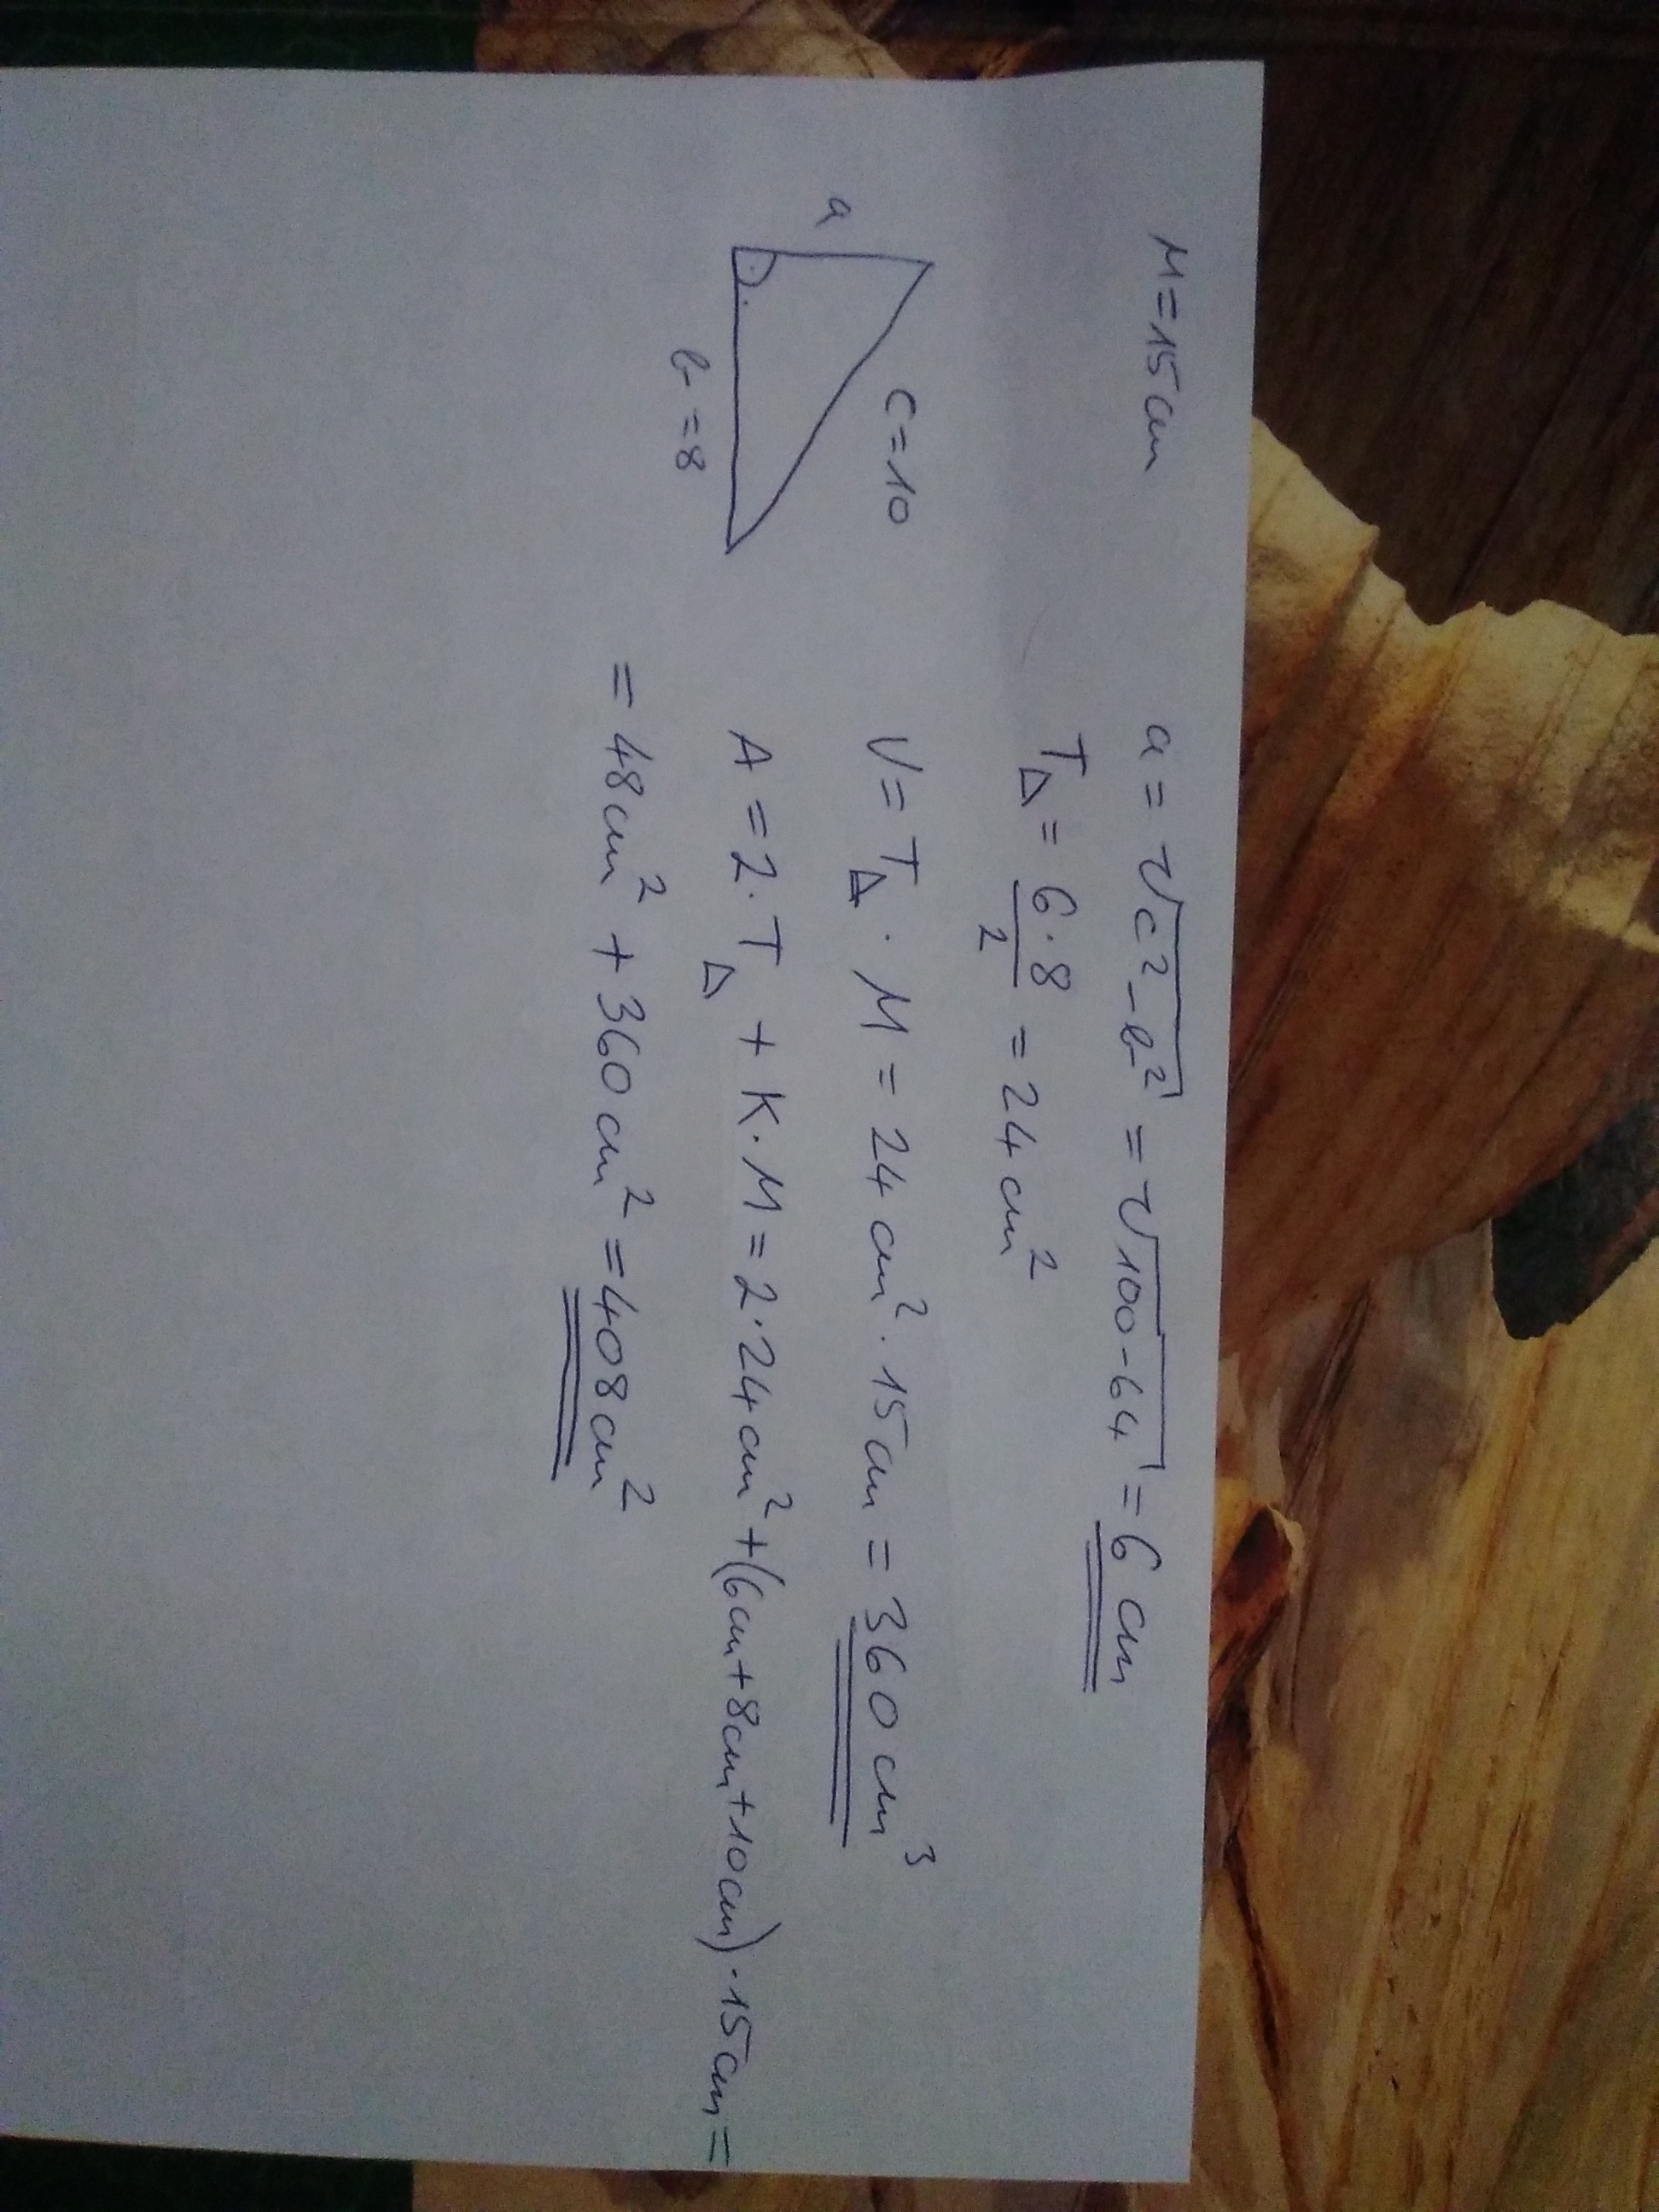 M=15cm
a = √c²-b² = √100-64 = 6 cm
T△ = 6·8/2 = 24 cm²
c=10
a
b=8
V = T△ · M = 24 cm² · 15 cm = 360 cm³
A = 2·T△ + K·M = 2·24cm² + (6cm+8cm+10cm)·15cm =
= 48cm² + 360cm² = 408cm²